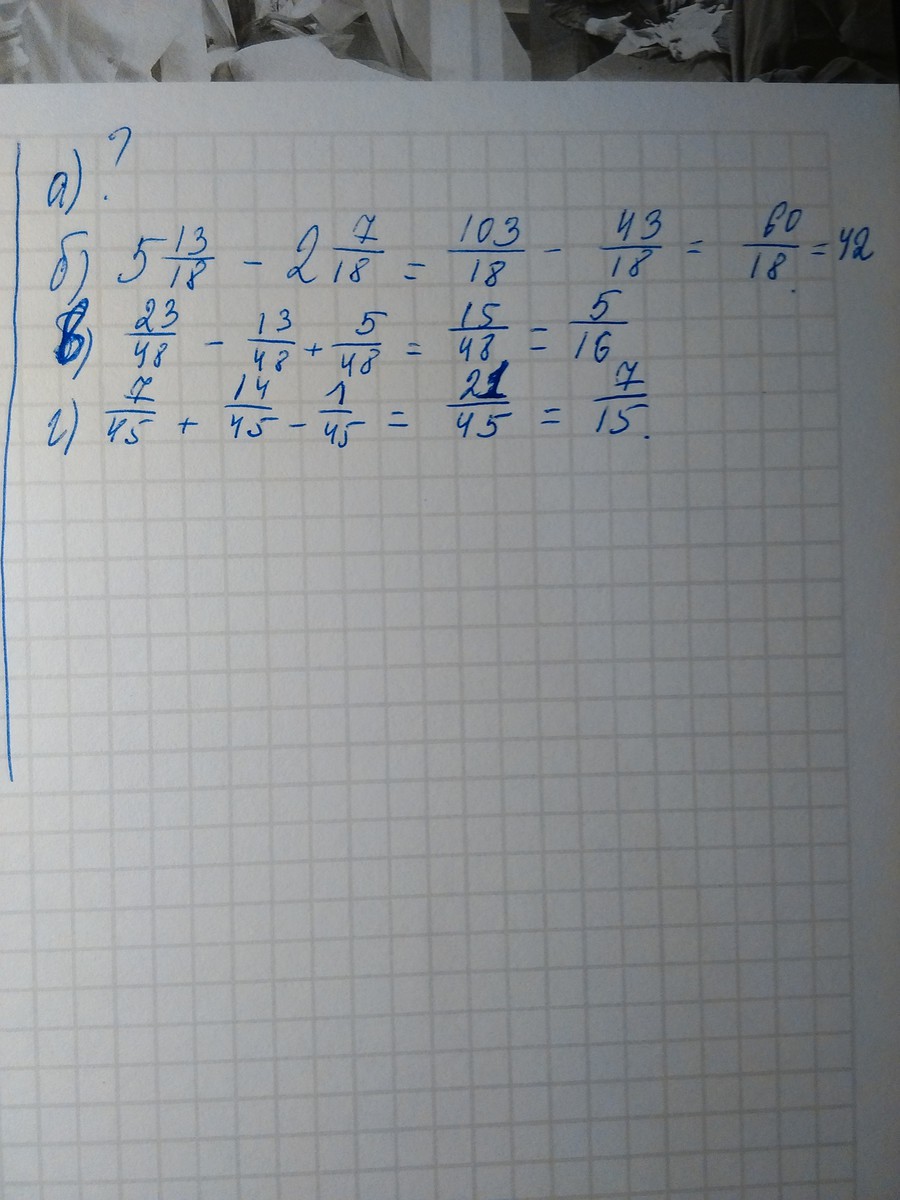 а) ?
б) 5 13/18 - 2 7/18 = 103/18 - 43/18 = 60/18 = 42
в) 23/48 - 13/48 + 5/48 = 15/48 = 5/16
г) 7/45 + 14/45 - 1/45 = 21/45 = 7/15.